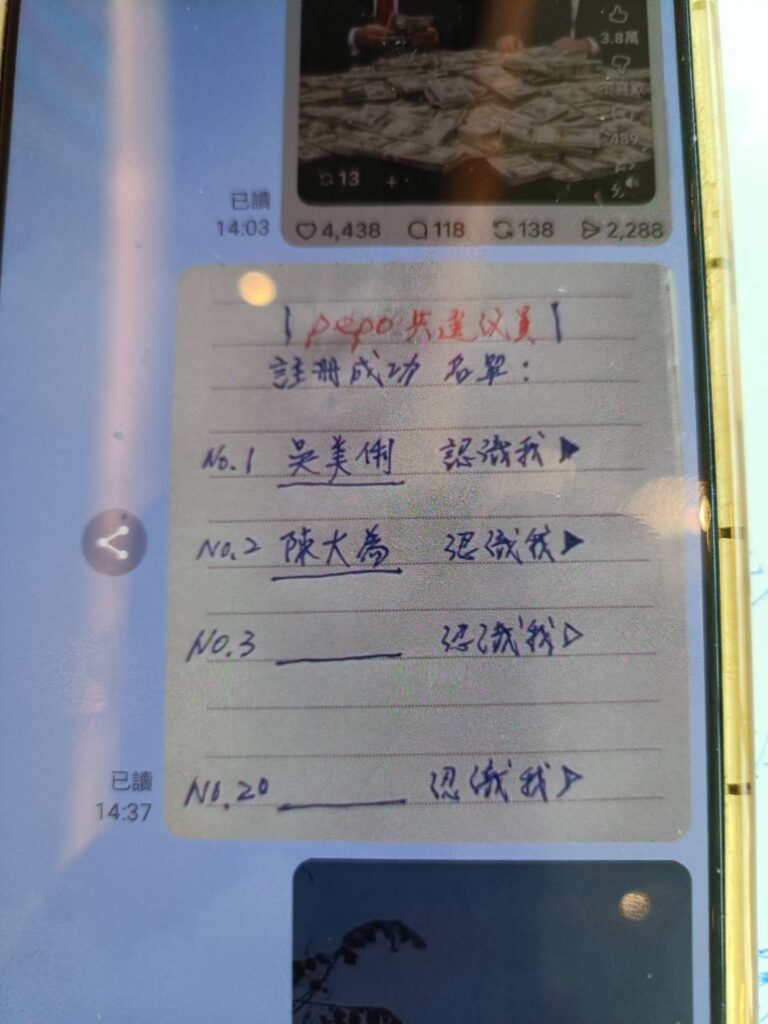 3.8萬
不喜歡
489
13
已讀
14:03
4,438 118 138 2,288
pepo 共選仪員
註册成功 名單：
No.1 吳美俐 認識我▶
No.2 陳大為 認識我▶
No.3 認識我▷
已讀
14:37
No.20 認識我▷